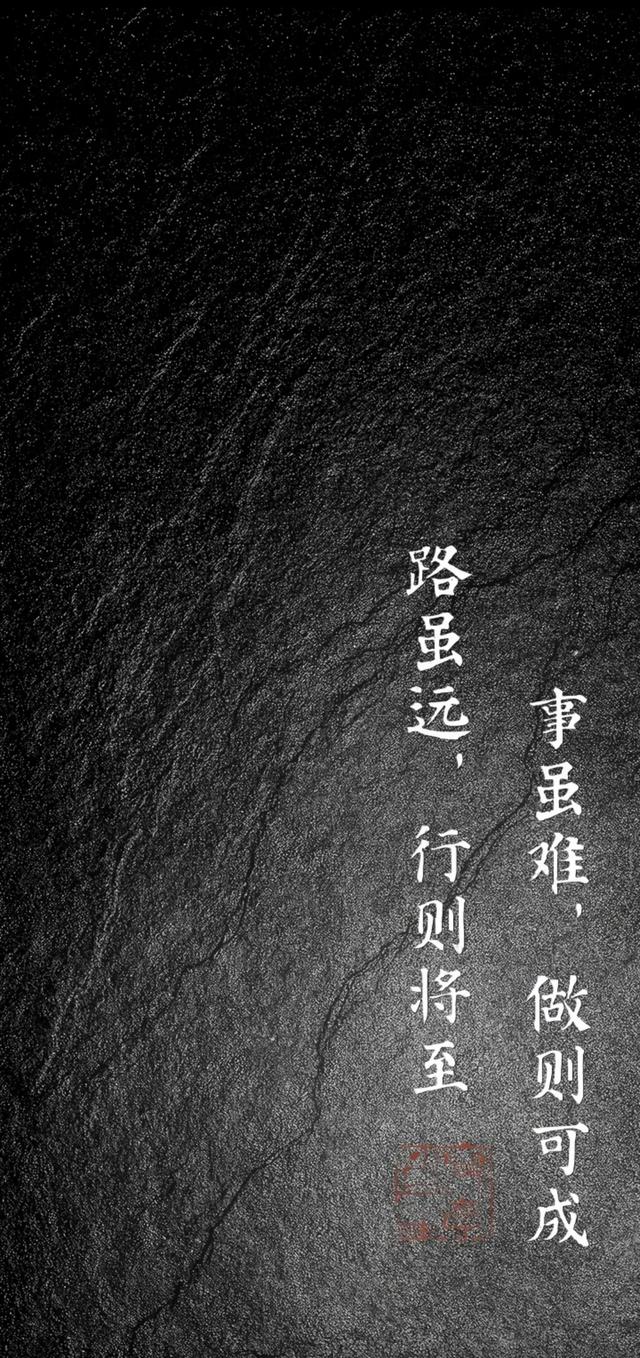 事虽难，做则可成
路虽远，行则将至